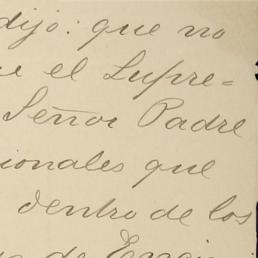 dijo: que no
el Supre=
Señor Padre
cionales que
dentro de los
de